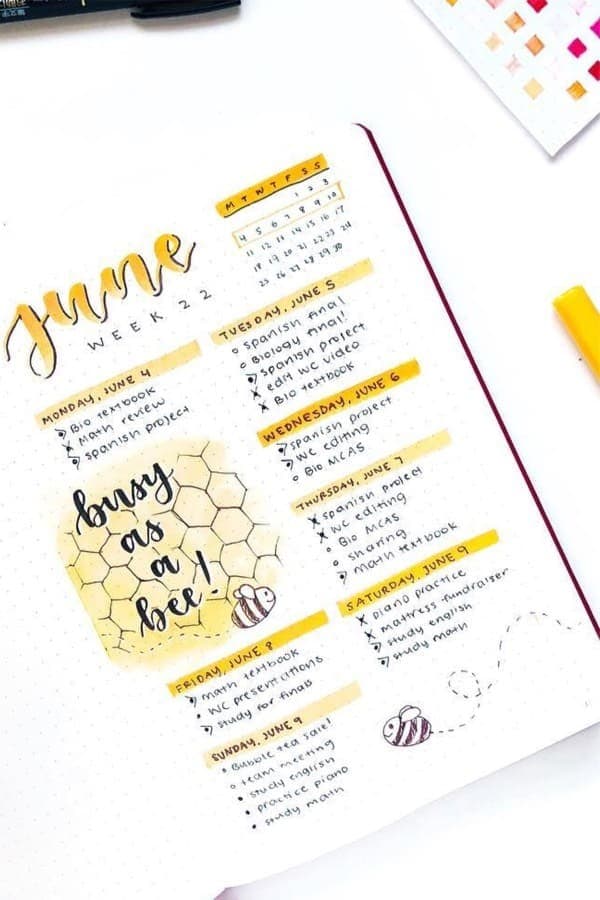 june
WEEK 22
M T W T F S S
1 2 3
4 5 6 7 8 9 10
11 12 13 14 15 16 17
18 19 20 21 22 23 24
25 26 27 28 29 30
MONDAY, JUNE 4
Bio textbook
Math review
spanish project
TUESDAY, JUNE 5
spanish final
Biology final!
spanish project
edit WC video
Bio textbook
WEDNESDAY, JUNE 6
spanish project
WC editing
Bio MCAS
THURSDAY, JUNE 7
spanish project
WC editing
Bio MCAS
sharing
math textbook
busy
as
a
bee!
FRIDAY, JUNE 8
math textbook
WC presentations
study for finals
SATURDAY, JUNE 9
piano practice
mattress fundraiser
study english
study math
SUNDAY, JUNE 9
Bubble tea sale!
team meeting
study english
practice piano
study math